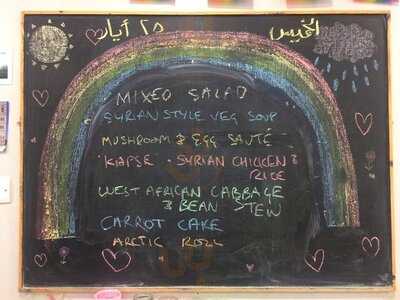 الخميس ٢٥ أيار
MIXED SALAD
SYRIAN STYLE VEG SOUP
MUSHROOM & EGG SAUTÉ
'KAPSE' - SYRIAN CHICKEN &
RICE
WEST AFRICAN CABBAGE
& BEAN STEW
CARROT CAKE
ARCTIC ROLL